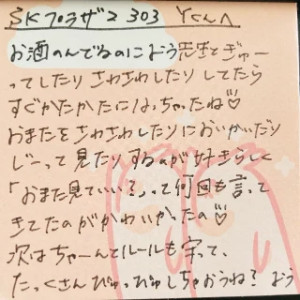 SKプラザ2 303 Yくんへ
お酒のんでるのにおう先生とぎゅー
ってしたりさわさわしたりしてたら
すぐかたかたになっちゃたね♡
おまたをさわさわしたりにおいかいだり
じーって見たりするのが好きらしく
「おまた見ていい?」って何回も言って
きてたのがかわいかたの♡
次はちゃーんとルールも守って、
たっくさんぴゅっぴゅしちゃおうね? おう